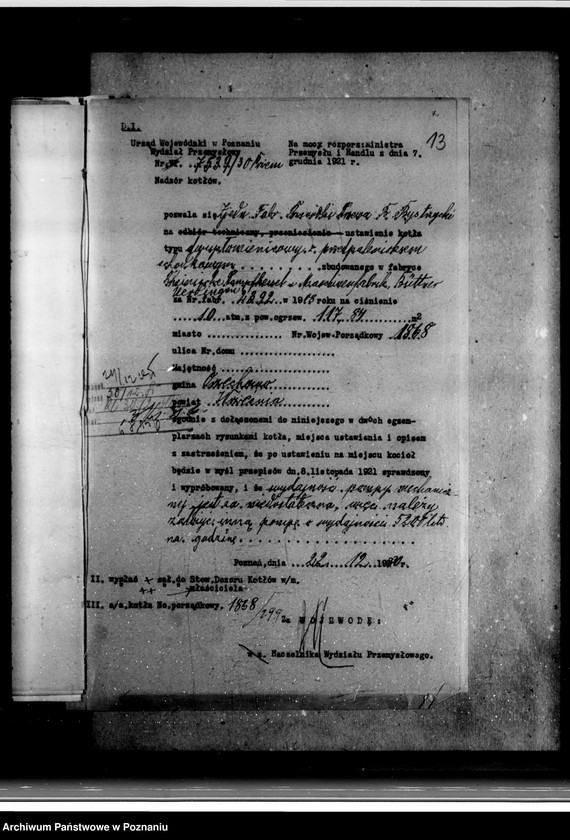 13
D.I.
Urząd Wojewódzki w Poznaniu
Wydział Przemysłowy
Nr. 7539/30 Przem
Nadzór kotłów.
Na mocy rozporz:Ministra
Przemysłu i Handlu z dnia 7.
grudnia 1921 r.
pozwala się Fabr.
na odbiór techniczny, przeniesienie - ustawienie kotła
typu dwupłomienicowy z przedpaleniskiem
zbudowanego w fabryce
Maschinenfabrik, Büttner
Uerdingen
za Nr.fabr. 4292 w 1915 roku na ciśnienie
10 atm.z pow.ogrzew. 117.84 m2
miasto Nr.Wojew.Porządkowy 1868
ulica Nr.domu
Majętność
gmina
powiat Września
zgodnie z dołączonemi do niniejszego w dwóch egzem-
plarzach rysunkami kotła, miejsca ustawienia i opisem
z zastrzeżeniem, że po ustawieniu na miejscu kocioł
będzie w myśl przepisów dn.8.listopada 1921 sprawdzony
i wypróbowany, i że wydajność pompy mechanicz
nej jest za niedostateczna, więc należy
inną pompę o wydajności ltr.
na godzinę
Poznań,dnia 22 12 1930r.
II. wypłać zał.do Stow.Dozoru Kotłów w/m.
właściciela
III. a/a.kotła No.porządkowy. 1868
/299
Za WOJEWODĘ:
w z. Naczelnika Wydziału Przemysłowego.
Archiwum Państwowe w Poznaniu